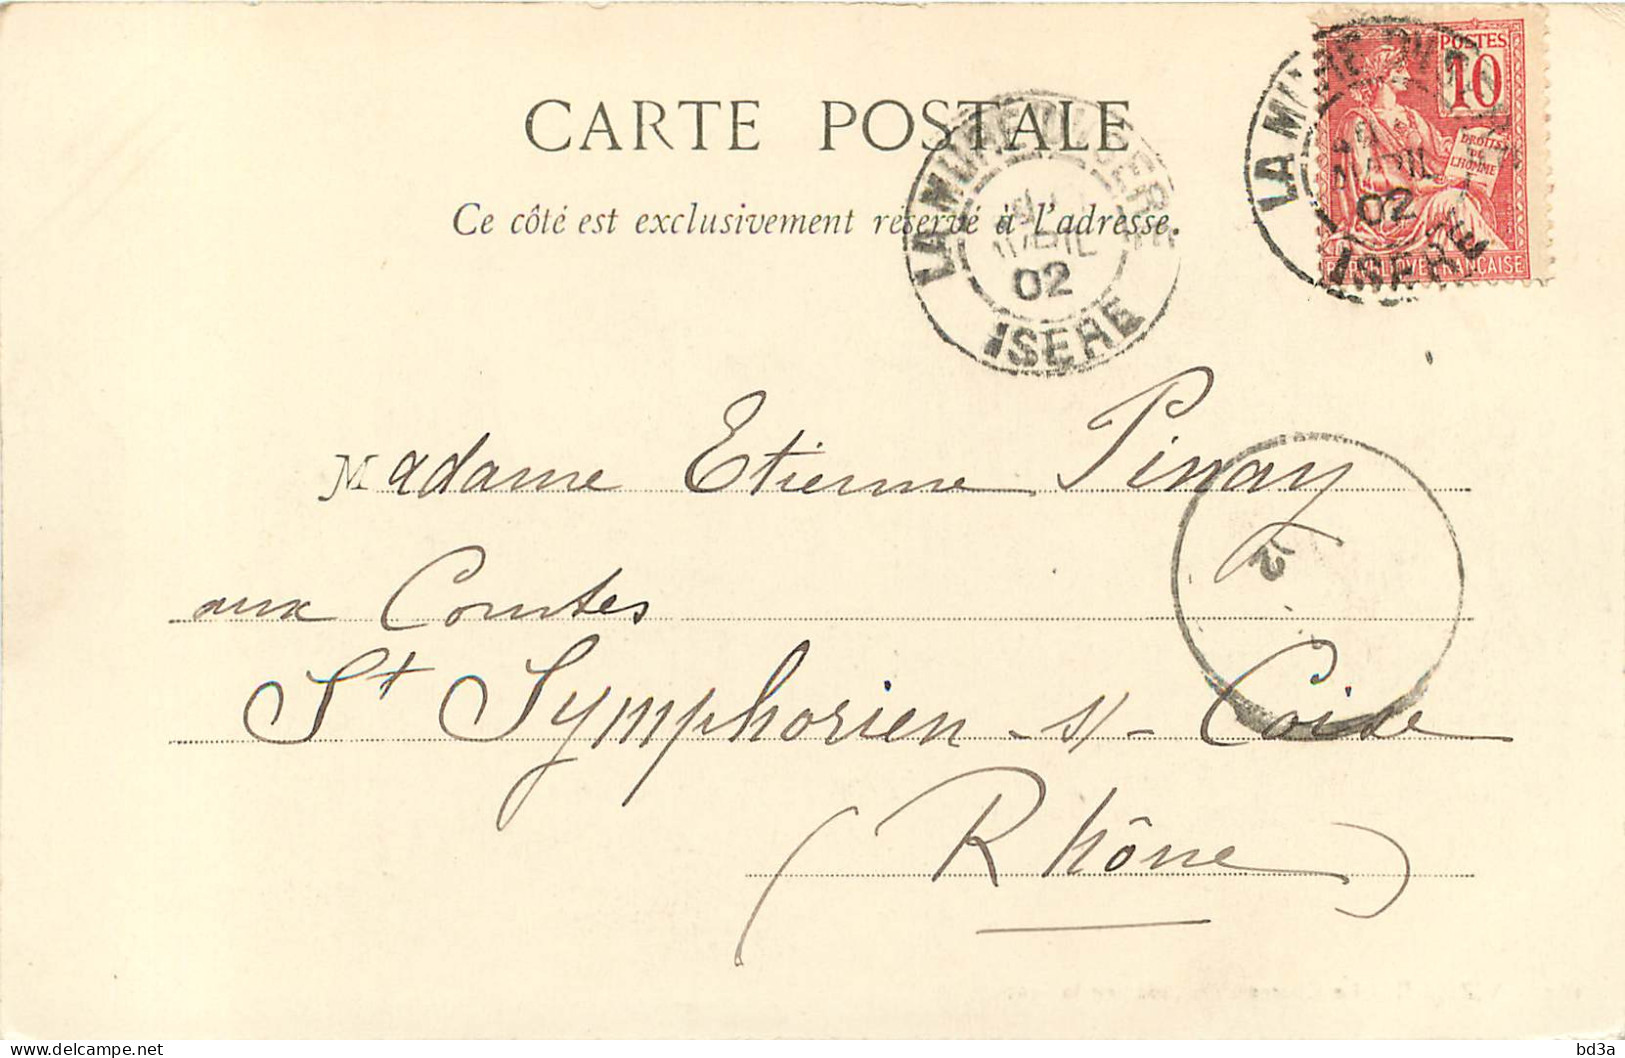 CARTE POSTALE
Ce côté est exclusivement réservé à l'adresse.
LA MURE
AVRIL
02
ISERE
POSTES
10
DROITS
DE
L'HOMME
REPUBLIQUE FRANÇAISE
LA MURE
AVRIL
02
ISERE
Madame Etienne Pinay
02
aux Comtes
St Symphorien - s/ - Coise
(Rhône)
bd3a